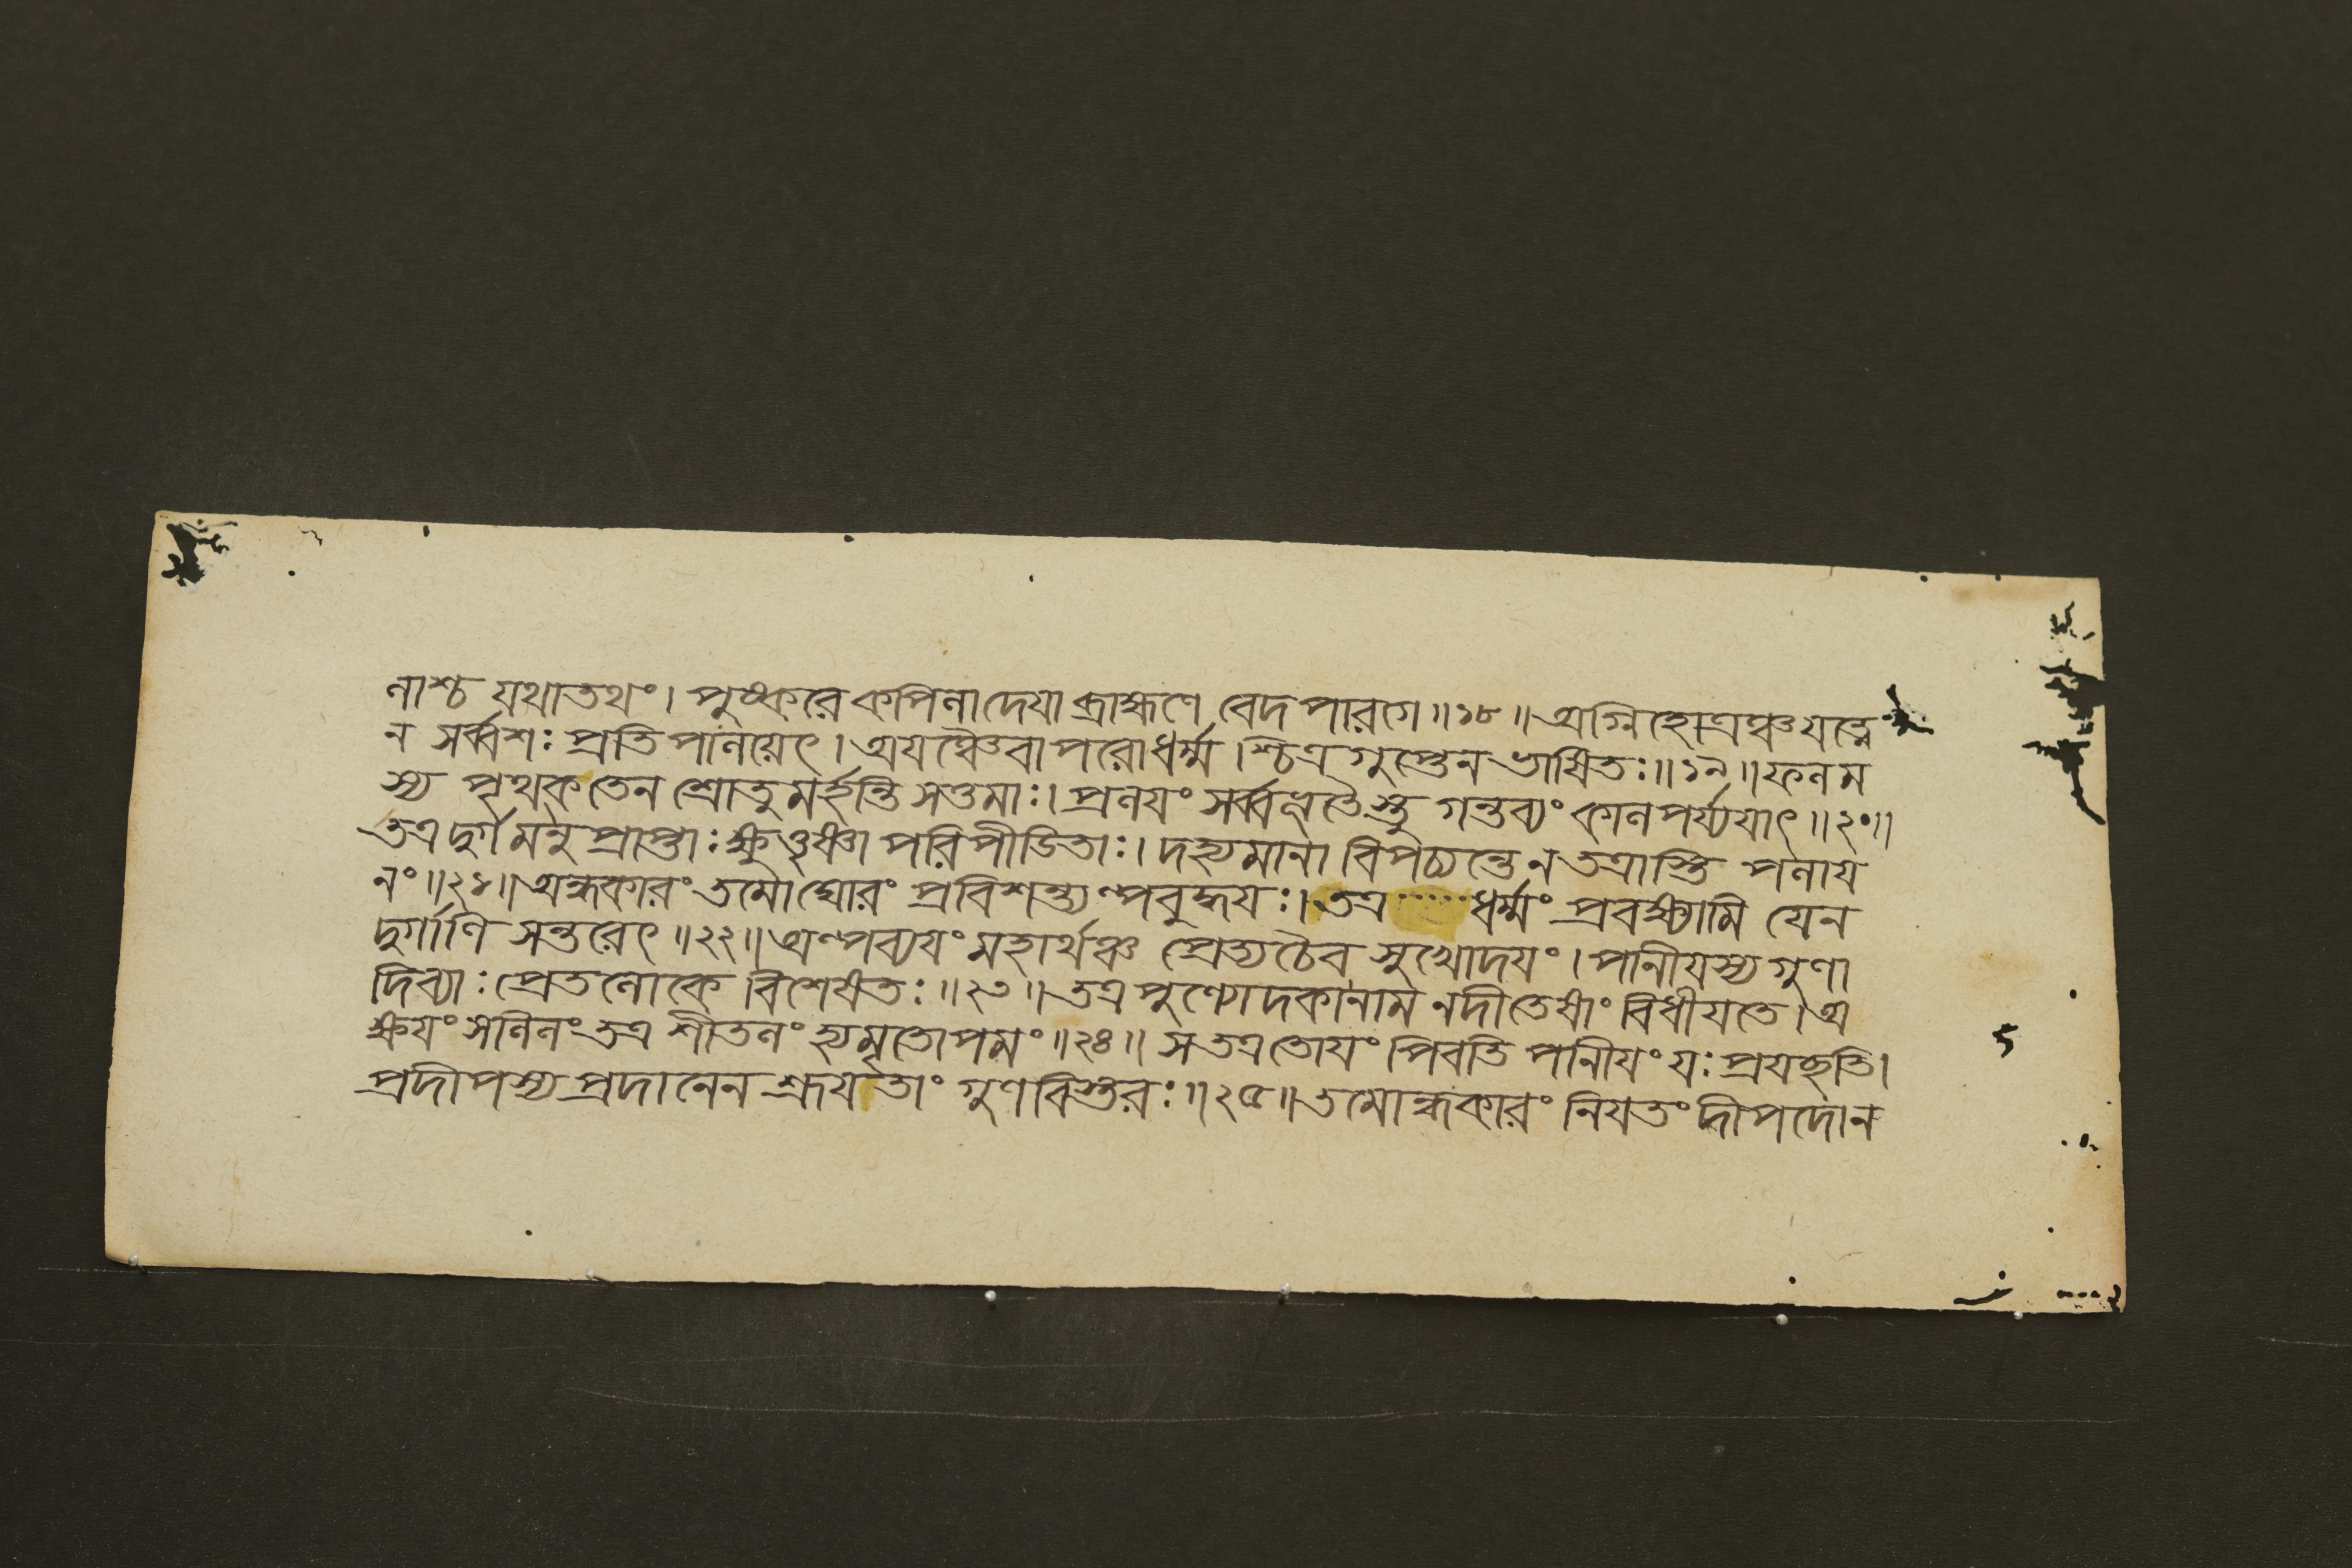 নাশ্চ যথাতথং। পুষ্করে কপিলাদেয়া ব্রাহ্মণে বেদ পারগে॥১৮॥ অগ্নিহোত্রঞ্চ যত্নে
ন সর্ব্বশঃ প্রতি পালয়েৎ। অয়ঞ্চৈবা পরোধর্ম্ম শ্চিত্র গুপ্তেন ভাষিতঃ॥১৯॥ ফলম
স্য পৃথক তেন শ্রোতু মর্হন্তি সত্তমাঃ। প্রলয়ং সর্ব্বভূতৈস্তু গন্তব্যং কাল পর্য্যয়াৎ॥২০॥
তত্র দুর্গ মনু প্রাপ্তাঃ ক্ষুত্তৃষ্ণা পরি পীডিতাঃ। দহ্যমানা বিপচ্যন্তে ন তত্রাস্তি পলায়
নং॥২১॥ অন্ধকারং তমো ঘোরং প্রবিশন্ত্যল্পবুদ্ধয়ঃ। তত্র ধর্ম্মং প্রবক্ষ্যামি যেন
দুর্গাণি সন্তরেৎ॥২২॥ অল্পব্যয়ং মহার্থঞ্চ প্রেত্য চৈব সুখোদয়ং। পানীয়স্য গুণা
দিব্যাঃ প্রেতলোকে বিশেষতঃ॥২৩॥ তত্র পুণ্যোদকানাম নদী তেষাং বিধীয়তে। অ
ক্ষয়ং সলিলং তত্র শীতলং হ্যমৃতোপমং॥২৪॥ স তত্র তোয়ং পিবতি পানীয়ং যঃ প্রযচ্ছতি।
প্রদীপস্য প্রদানেন শ্রূয়তাং গুণ বিস্তরঃ॥২৫॥ তমোন্ধকারং নিয়তং দীপদোন